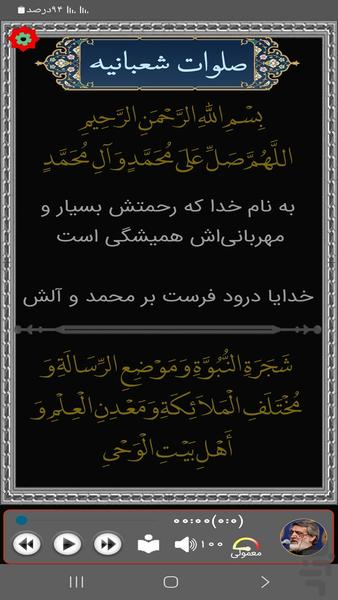 ۹۴درصد
صلوات شعبانیه
بِسْمِ اللَّهِ الرَّحْمَنِ الرَّحِيمِ
اللَّهُمَّ صَلِّ عَلَى مُحَمَّدٍ وَ آلِ مُحَمَّدٍ
به نام خدا که رحمتش بسیار و
مهربانی‌اش همیشگی است
خدایا درود فرست بر محمد و آلش
شَجَرَةِ النُّبُوَّةِ وَ مَوْضِعِ الرِّسَالَةِ وَ
مُخْتَلَفِ الْمَلَائِكَةِ وَ مَعْدِنِ الْعِلْمِ وَ
أَهْلِ بَيْتِ الْوَحْيِ
۰۰:۰۰(۰:۰)
۱۰۰
معمولی